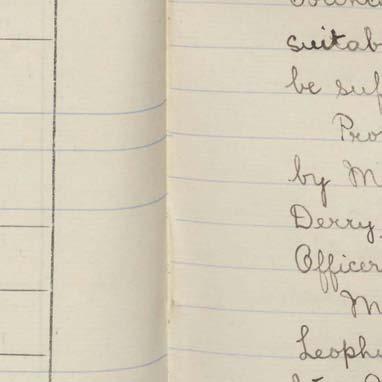 suitab
be suf
Pro
by M
Derry,
Officer
M
Leoph